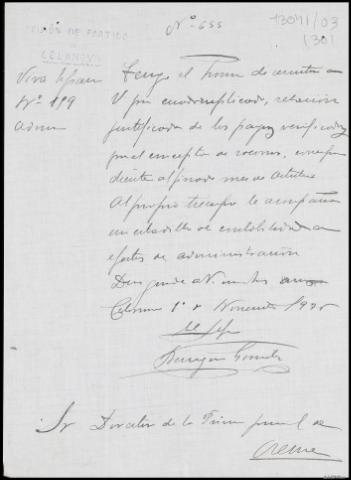 Nº 655
13041/03
(30)
PRISIÓN DE PARTIDO
DE
CELANOVA
Nº 199
Tengo el honor de remitir a
V por cuadruplicado, relación
justificada de los pagos verificados
por el concepto de socorros, correspon
diente al pasado mes de Octubre
Al propio tiempo le acompaño
un estadillo de contabilidad a
efectos de administración
Dios guarde a V. muchos años
Celanova 1º de Noviembre 19
El Jefe
Sr Director de la Prisión provincial de
Orense